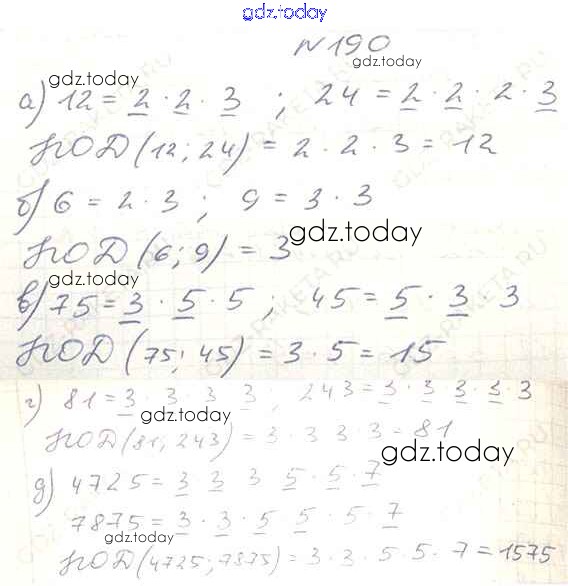 gdz.today
№190
gdz.today
gdz.today
а) 12 = 2 · 2 · 3 ; 24 = 2 · 2 · 2 · 3
НОД (12; 24) = 2 · 2 · 3 = 12
б) 6 = 2 · 3 ; 9 = 3 · 3
gdz.today
НОД (6; 9) = 3
gdz.today
в) 75 = 3 · 5 · 5 ; 45 = 5 · 3 · 3
НОД (75; 45) = 3 · 5 = 15
г) 81 = 3 · 3 · 3 · 3 ; 243 = 3 · 3 3 · 3 · 3
gdz.today
НОД (81; 243) = 3 · 3 3 · 3 = 81
gdz.today
д) 4725 = 3 · 3 3 5 · 5 · 7
7875 = 3 · 3 · 5 5 · 5 · 7
gdz.today
НОД (4725; 7875) = 3 · 3 · 5 · 5 · 7 = 1575